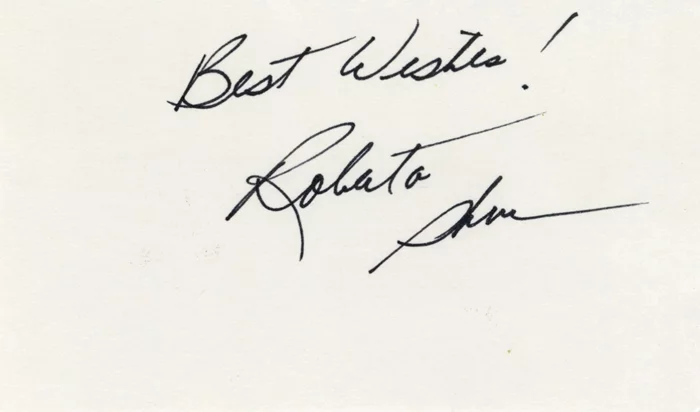 Best Wishes!
Roberta